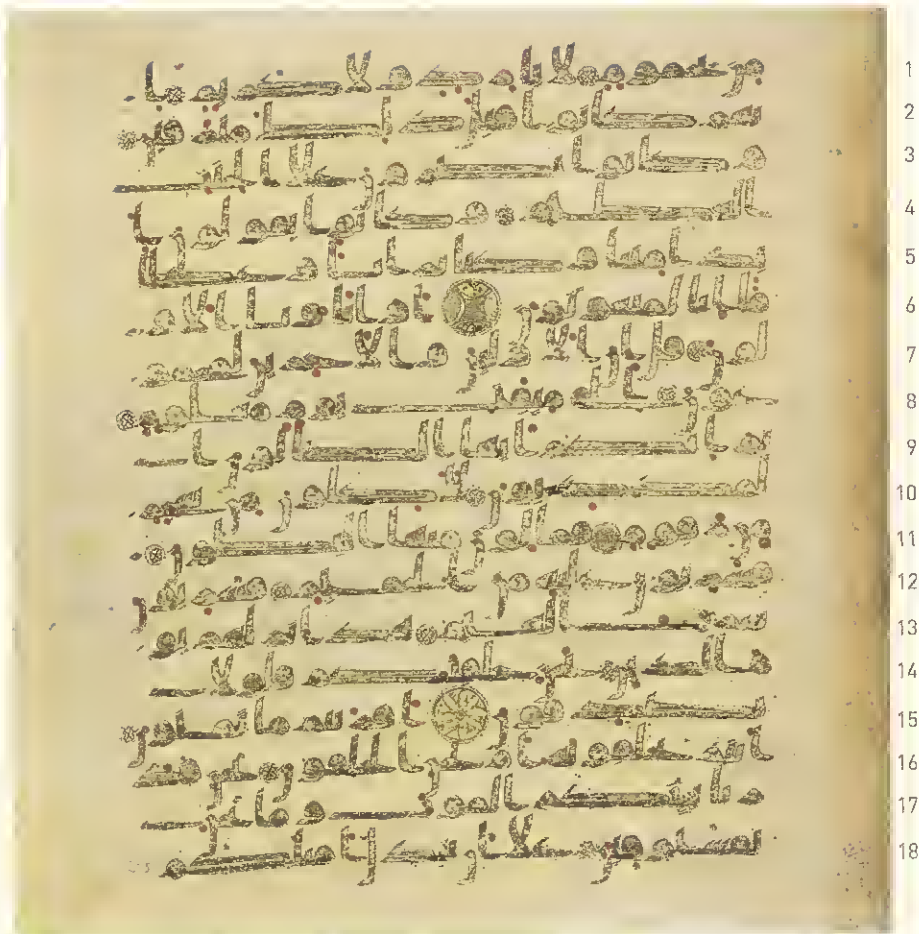 من يحموم لا بارد ولا كريم ا 1
نهم كانوا قبل ذلك مترفين 2
وكانوا يصرون على الحنث 3
العظيم وكانوا يقولون ائذا 4
متنا وكنا ترابا وعظاما 5
ائنا لمبعوثون او اباؤنا الاو 6
لون قل ان الاولين والاخرين لمجمو 7
عون الى ميقات يوم معلوم 8
ثم انكم ايها الضالون ا 9
لمكذبون لاكلون من شجر 10
من زقوم فمالئون منها البطون 11
فشاربون عليه من الحميم فشار 12
بون شرب الهيم هذا نزلهم يو 13
م الدين نحن خلقناكم فلولا 14
تصدقون افرايتم ما تمنون 15
اانتم تخلقونه ام نحن الخالقون نحن قد 16
رنا بينكم الموت وما نحن 17
بمسبوقين على ان نبدل امثالكم 18